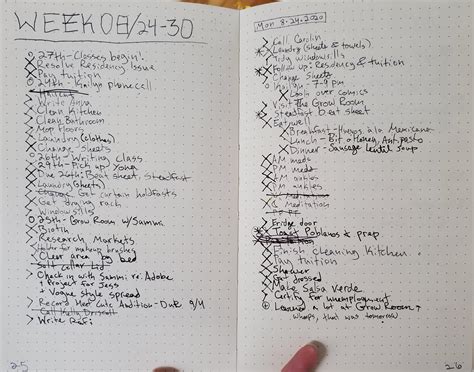 WEEK 08/24-30
27th - Classes begin!
Resolve Residency Issue
Pay tuition
24th - Kailyn phone call
Write Anya
Clean Kitchen
Clean Bathroom
Mop floors
Laundry (clothes)
Change Sheets
26th - Writing class
29th - Pick up Yoha
Due 26th: Beat sheet, Steadfast
Laundry (sheets)
Get certain holdfasts
Get drying rack
Windowsills
25th - Grow Room w/Samma
Biotin
Research Markets
Holder for makeup brushes
Clear area by bed
Salt cellar lid
Check in with Sammi re: Adobe
+ Project for Jess
+ Vogue style spread
Record Meet Cute Audition - Due 9/4
Call Kelly Driscoll
Write Rafi
25
Mon 8.24.2020
Call Carolin
Laundry (sheets & towels)
Tidy windowsills
Follow up: Residency & tuition
Change Sheets
Kailyn - 7-9 pm
Look over comics
Visit The Grow Room
Steadfast beat sheet
Eat well
Breakfast - Huevos a la Mexicana
Lunch - Bit o' honey, Antipasto
Dinner - Sausage lentil soup
AM meds
PM meds
AM ankles
PM ankles
Meditation
Meditation
Fridge door
Toast Poblanos & prep
Finish cleaning kitchen
Pay tuition
Shower
Get dressed
Make Salsa verde
Certify for unemployment
Learned a lot at Grow Room!
whoops, that was tomorrow
26